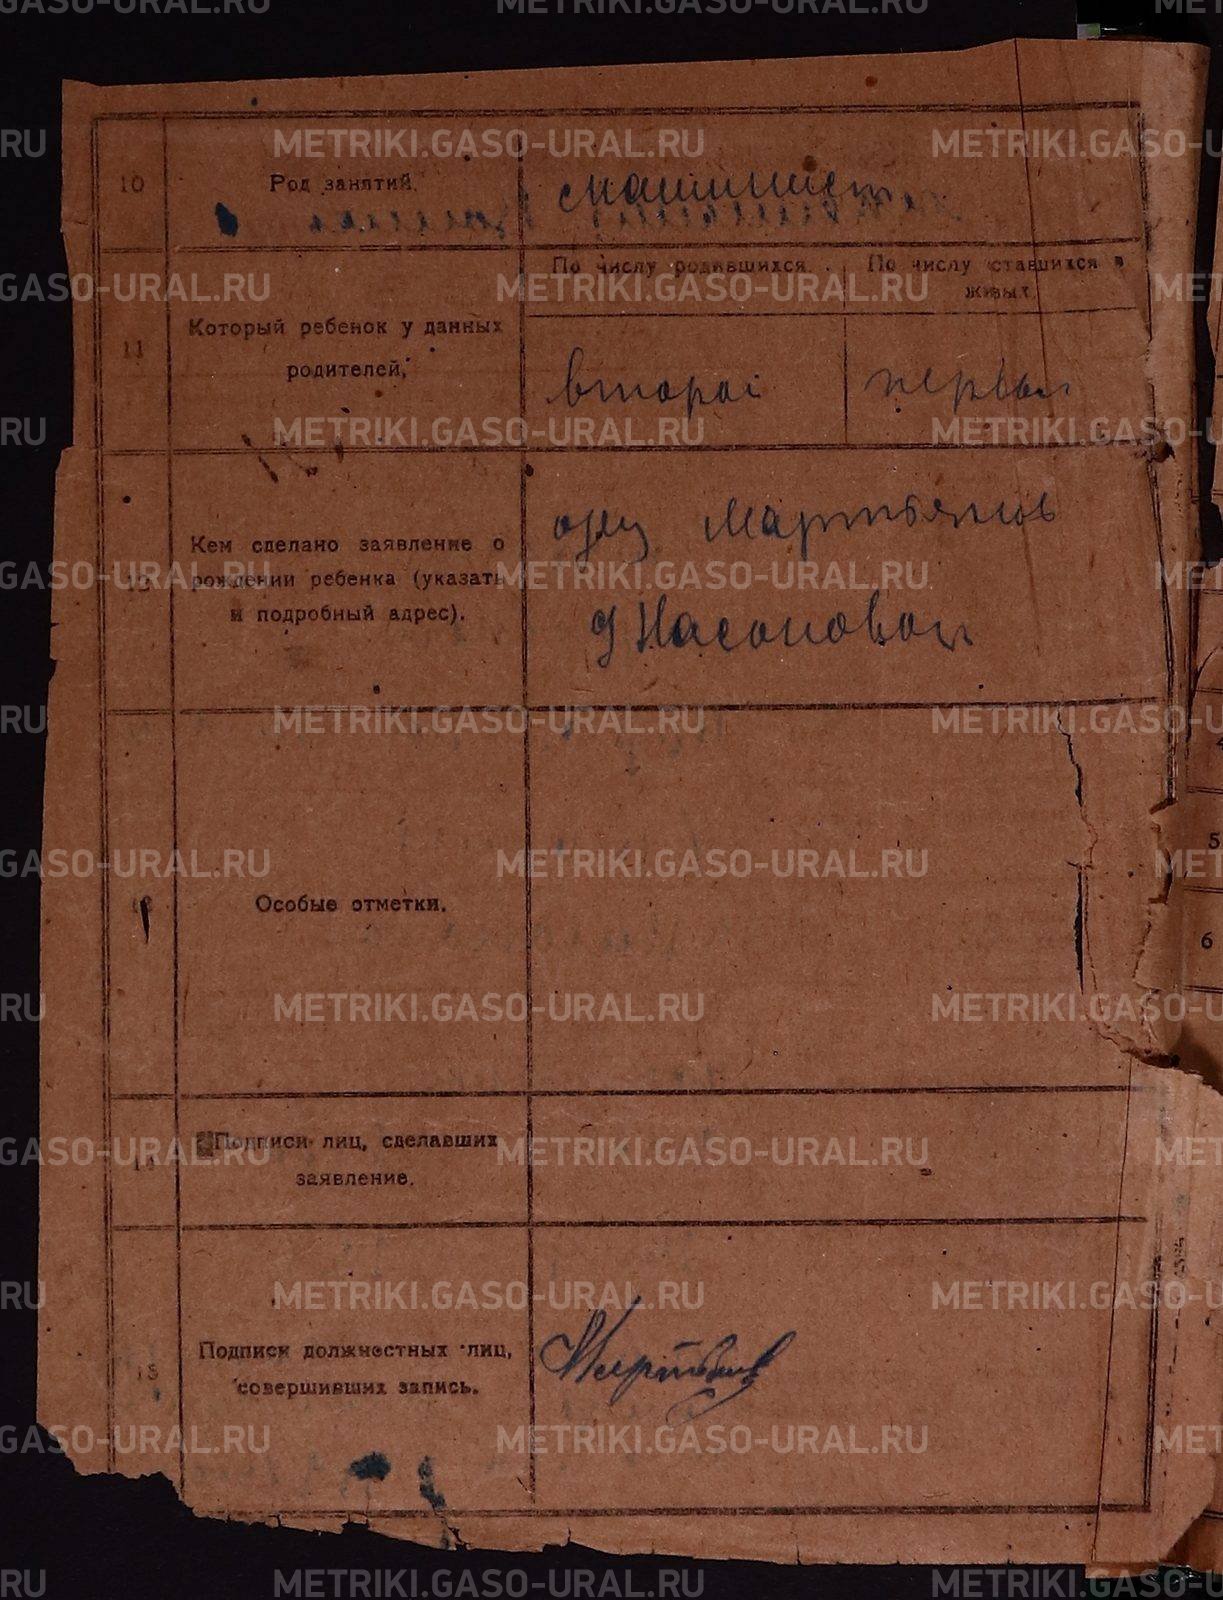 10
Род занятий.
машинист
11
Который ребенок у данных
родителей,
По числу родившихся.
По числу оставшихся в
живых.
второй
первый
12
Кем сделано заявление о
рождении ребенка (указать
и подробный адрес).
отец Мартьянов
д Насоновой
Особые отметки.
14
Подписи лиц, сделавших
заявление.
15
Подписи должностных лиц,
совершивших запись.
5
6
METRIKI.GASO-URAL.RU